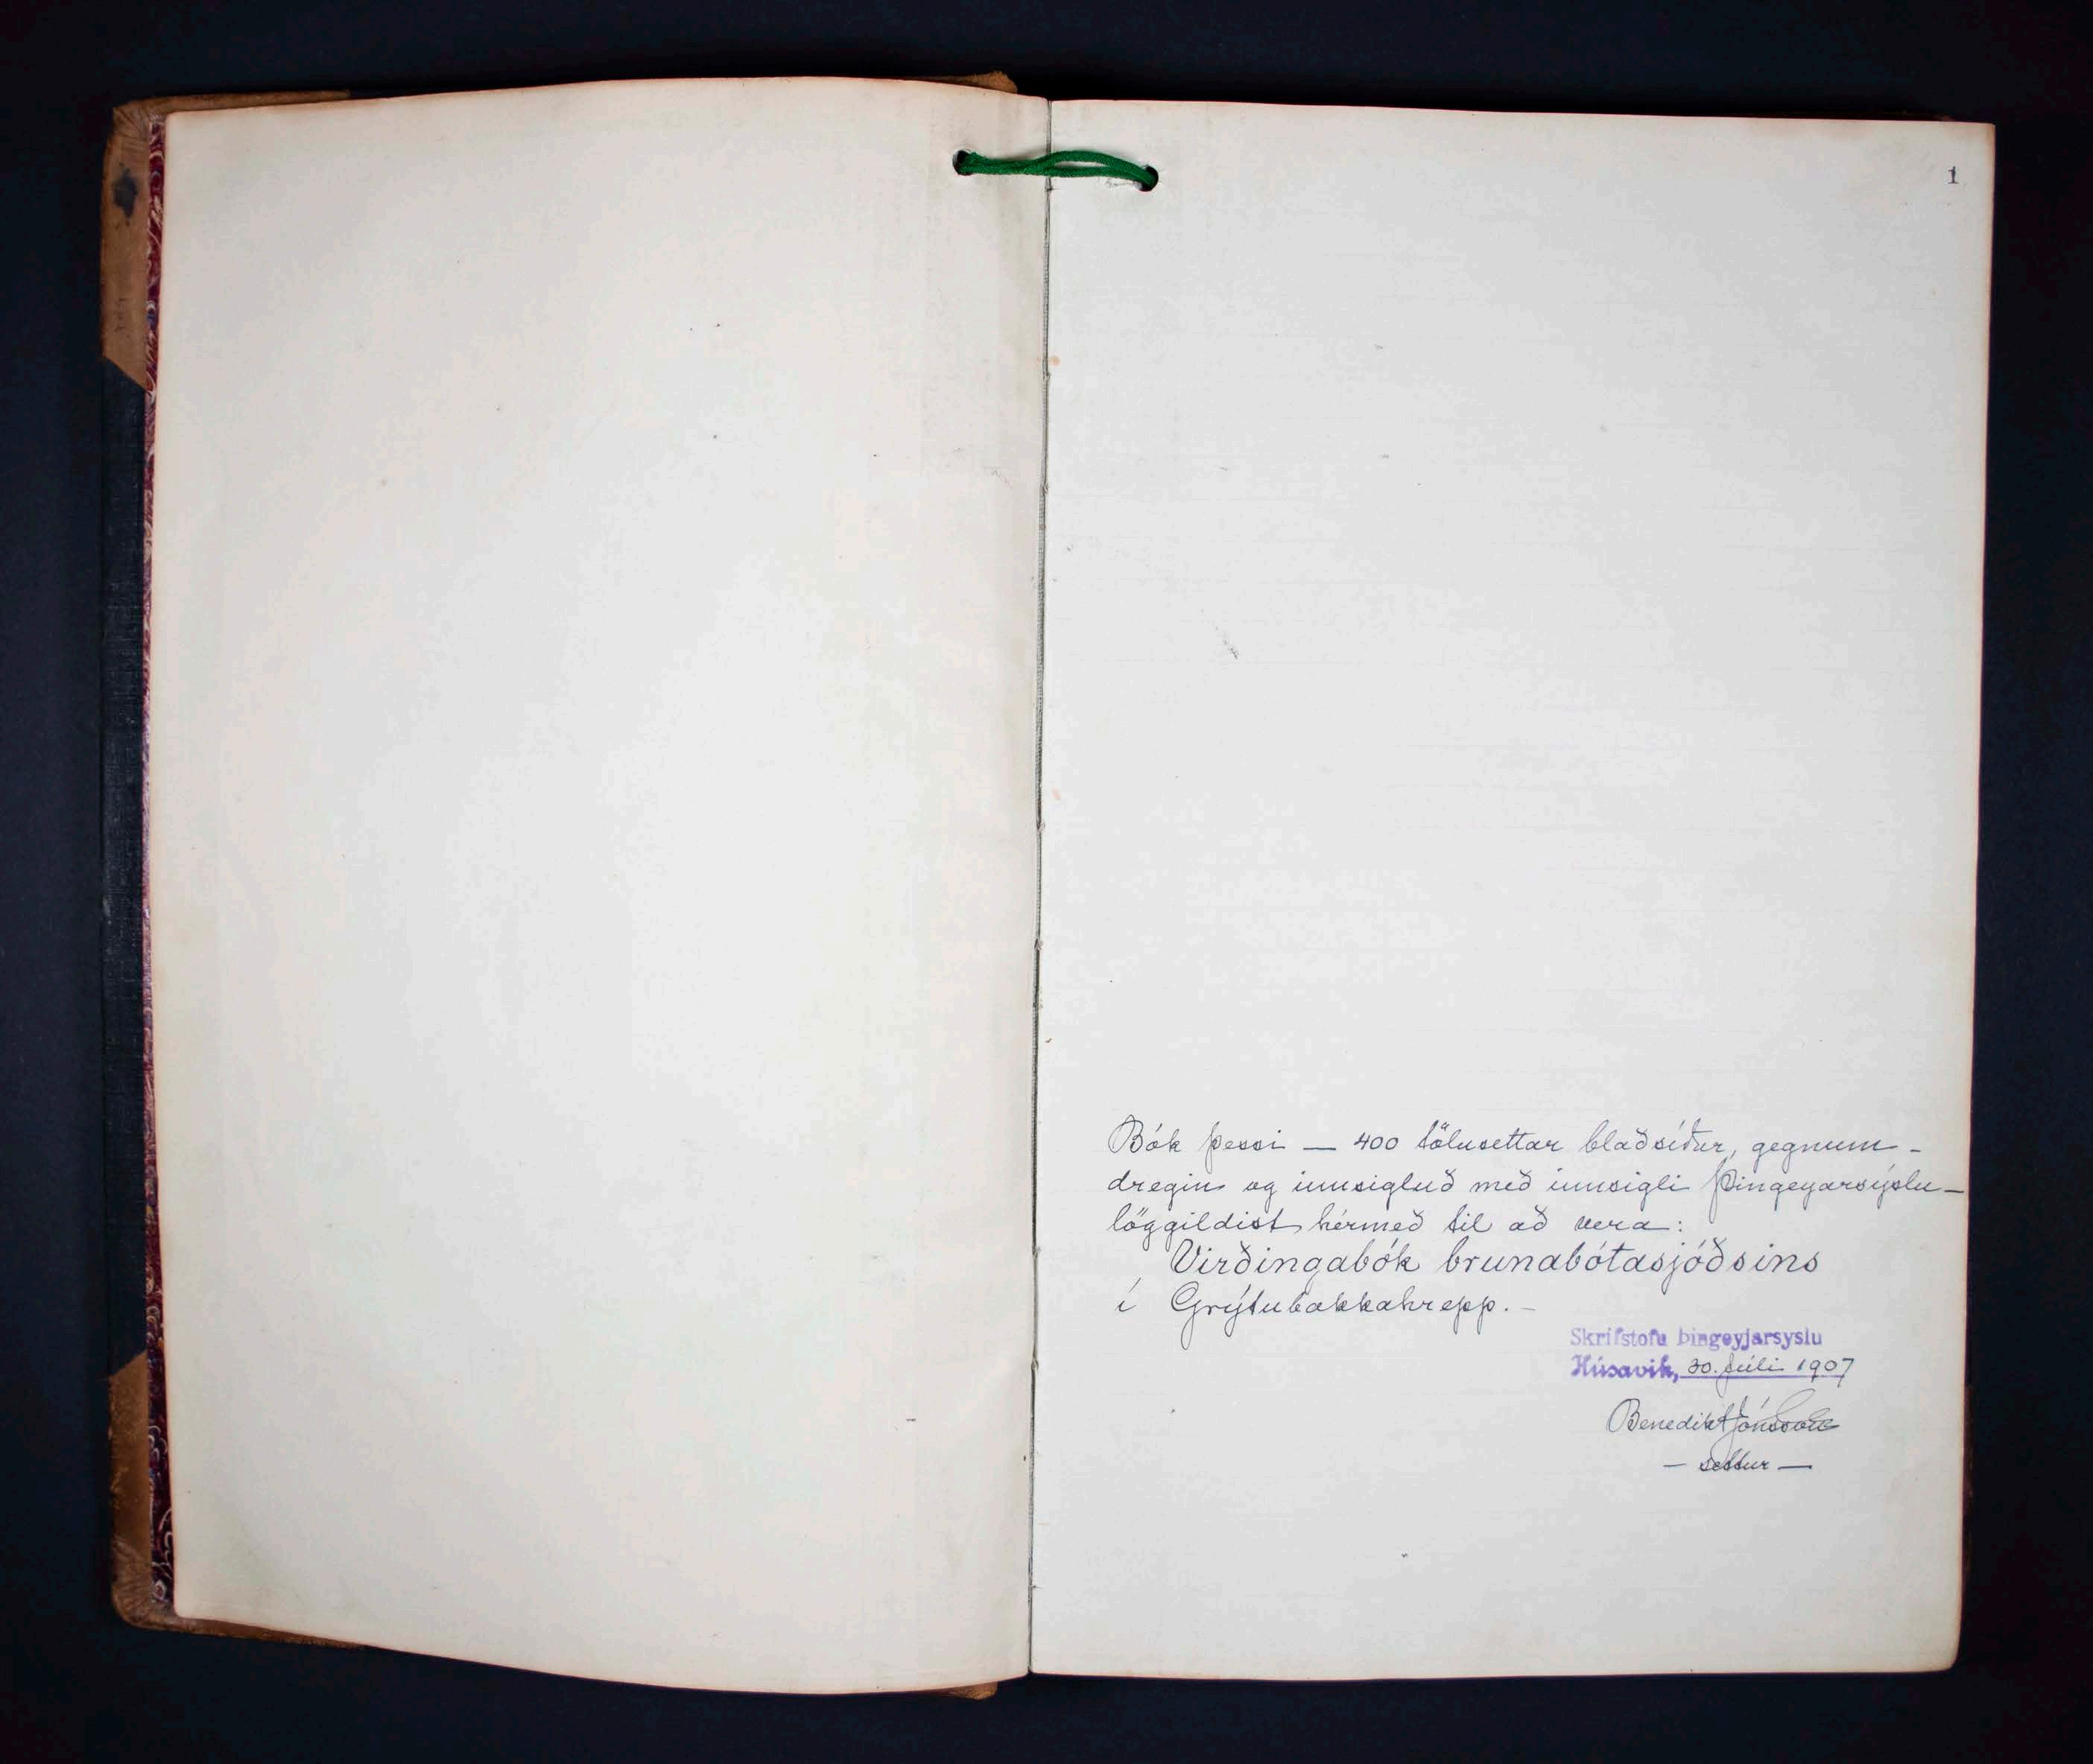 1
Bók þessi — 400 tölusettar blaðsíður, gegnum-
dregin og innsigluð með innsigli Þingeyarsýslu—
löggildist hérmeð til að vera:
Virðingabók brunabótasjóðsins
í Grýtubakkahrepp. -
Skrifstofu Þingeyjarsyslu
Húsavik, 30. Júli 1907
Benedikt Jónsson
— settur —